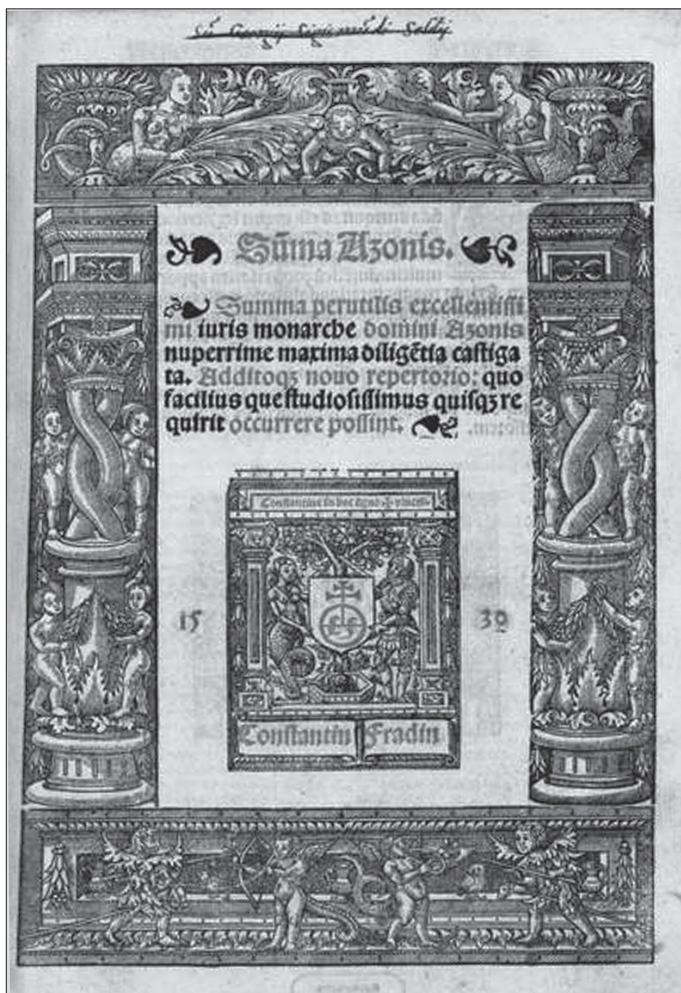 Sūma Azonis.
Summa perutilis excellentissi
mi iuris monarche domini Azonis
nuperrime maxima diligētia castiga
ta. Additoqꝫ nouo repertorio: quo
facilius que studiosissimus quisqꝫ re
quirit occurrere possint.
Constantine in hoc signo ✠ vinces.
15 30
Constantin Fradin